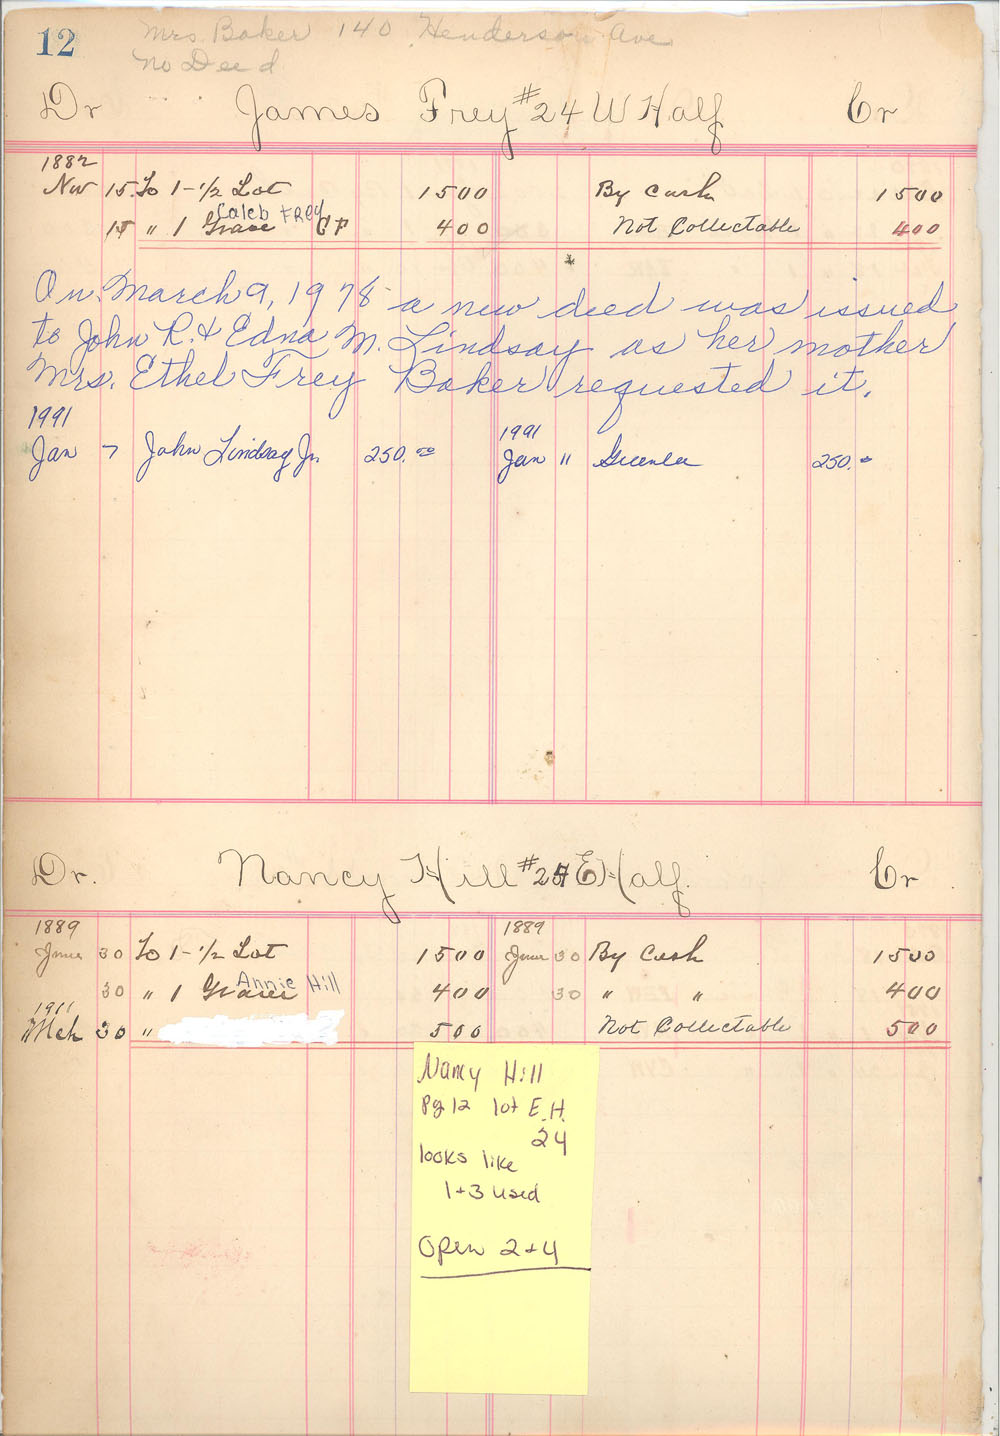 12
Mrs. Baker 140 Henderson Ave
No Deed
Dr James Frey #24 W Half Cr
1882
Nov 15. To 1-1/2 Lot 1500 By Cash 1500
Caleb Frey
15 " 1 Grave 400 Not Collectable 400
On March 9, 1978 a new deed was issued
to John R. & Edna M. Lindsay as her mother
Mrs. Ethel Frey Baker requested it.
1991 1991
Jan 7 John Lindsay Jr. 250.00 Jan " Greenlea 250.00
Dr. Nancy Hill #24 E Half. Cr
1889 1889
June 30 To 1-1/2 Lot 1500 June 30 By Cash 1500
Annie Hill
30 " 1 Graves 400 30 " " 400
1911
Mch 30 " 500 Not Collectable 500
Nancy Hill
Pg 12 lot E.H.
24
looks like
1+3 used
Open 2+4